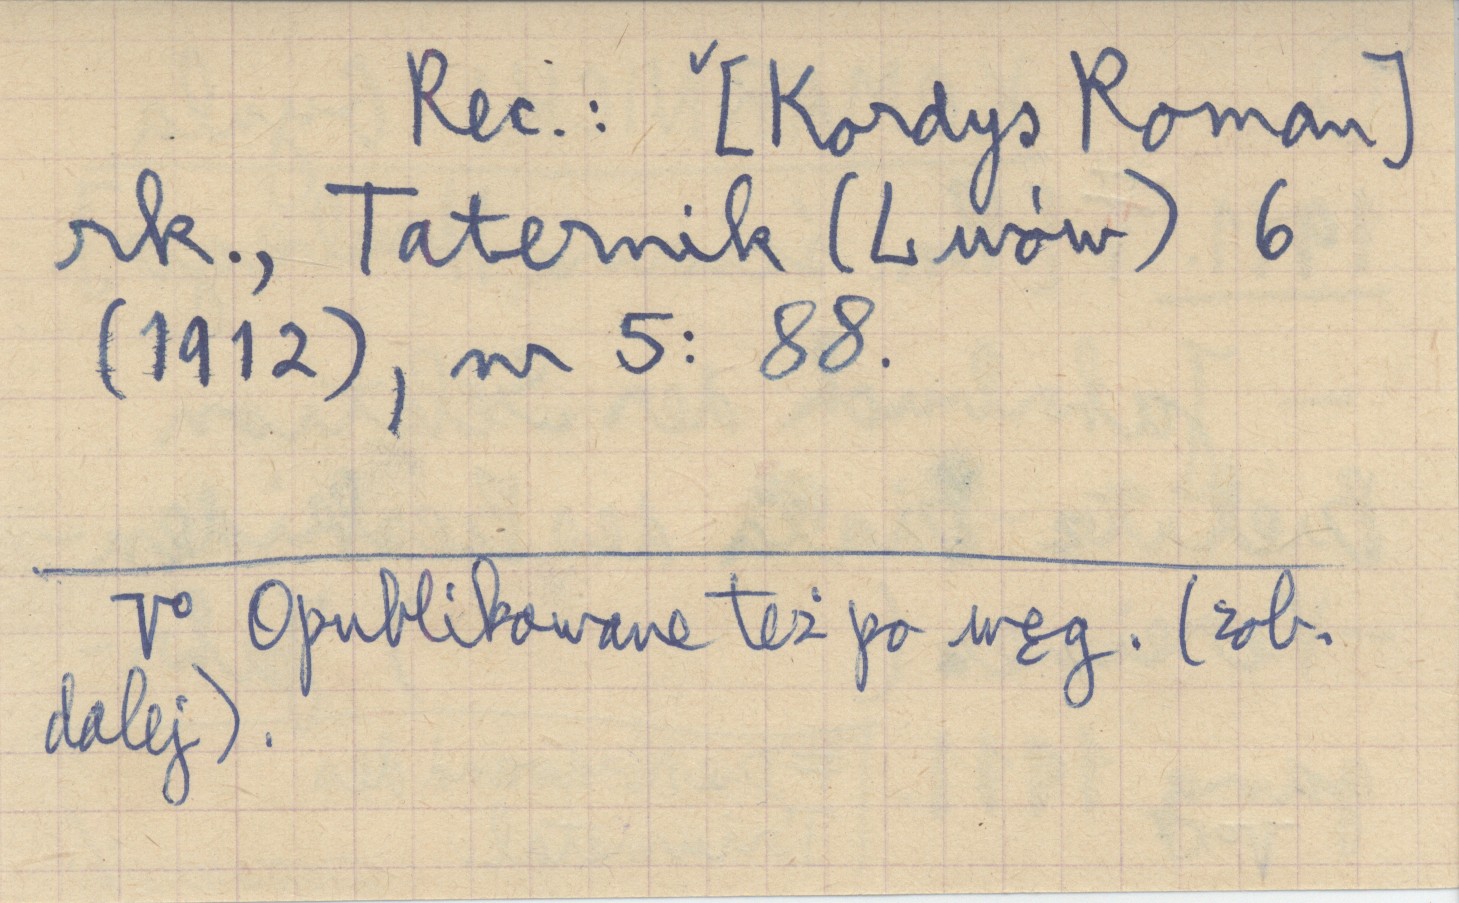 Rec.: ˅[Kordys Roman]
rk., Taternik (Lwów) 6
(1912), nr 5: 88.
Opublikowane też po węg. (zob.
dalej).